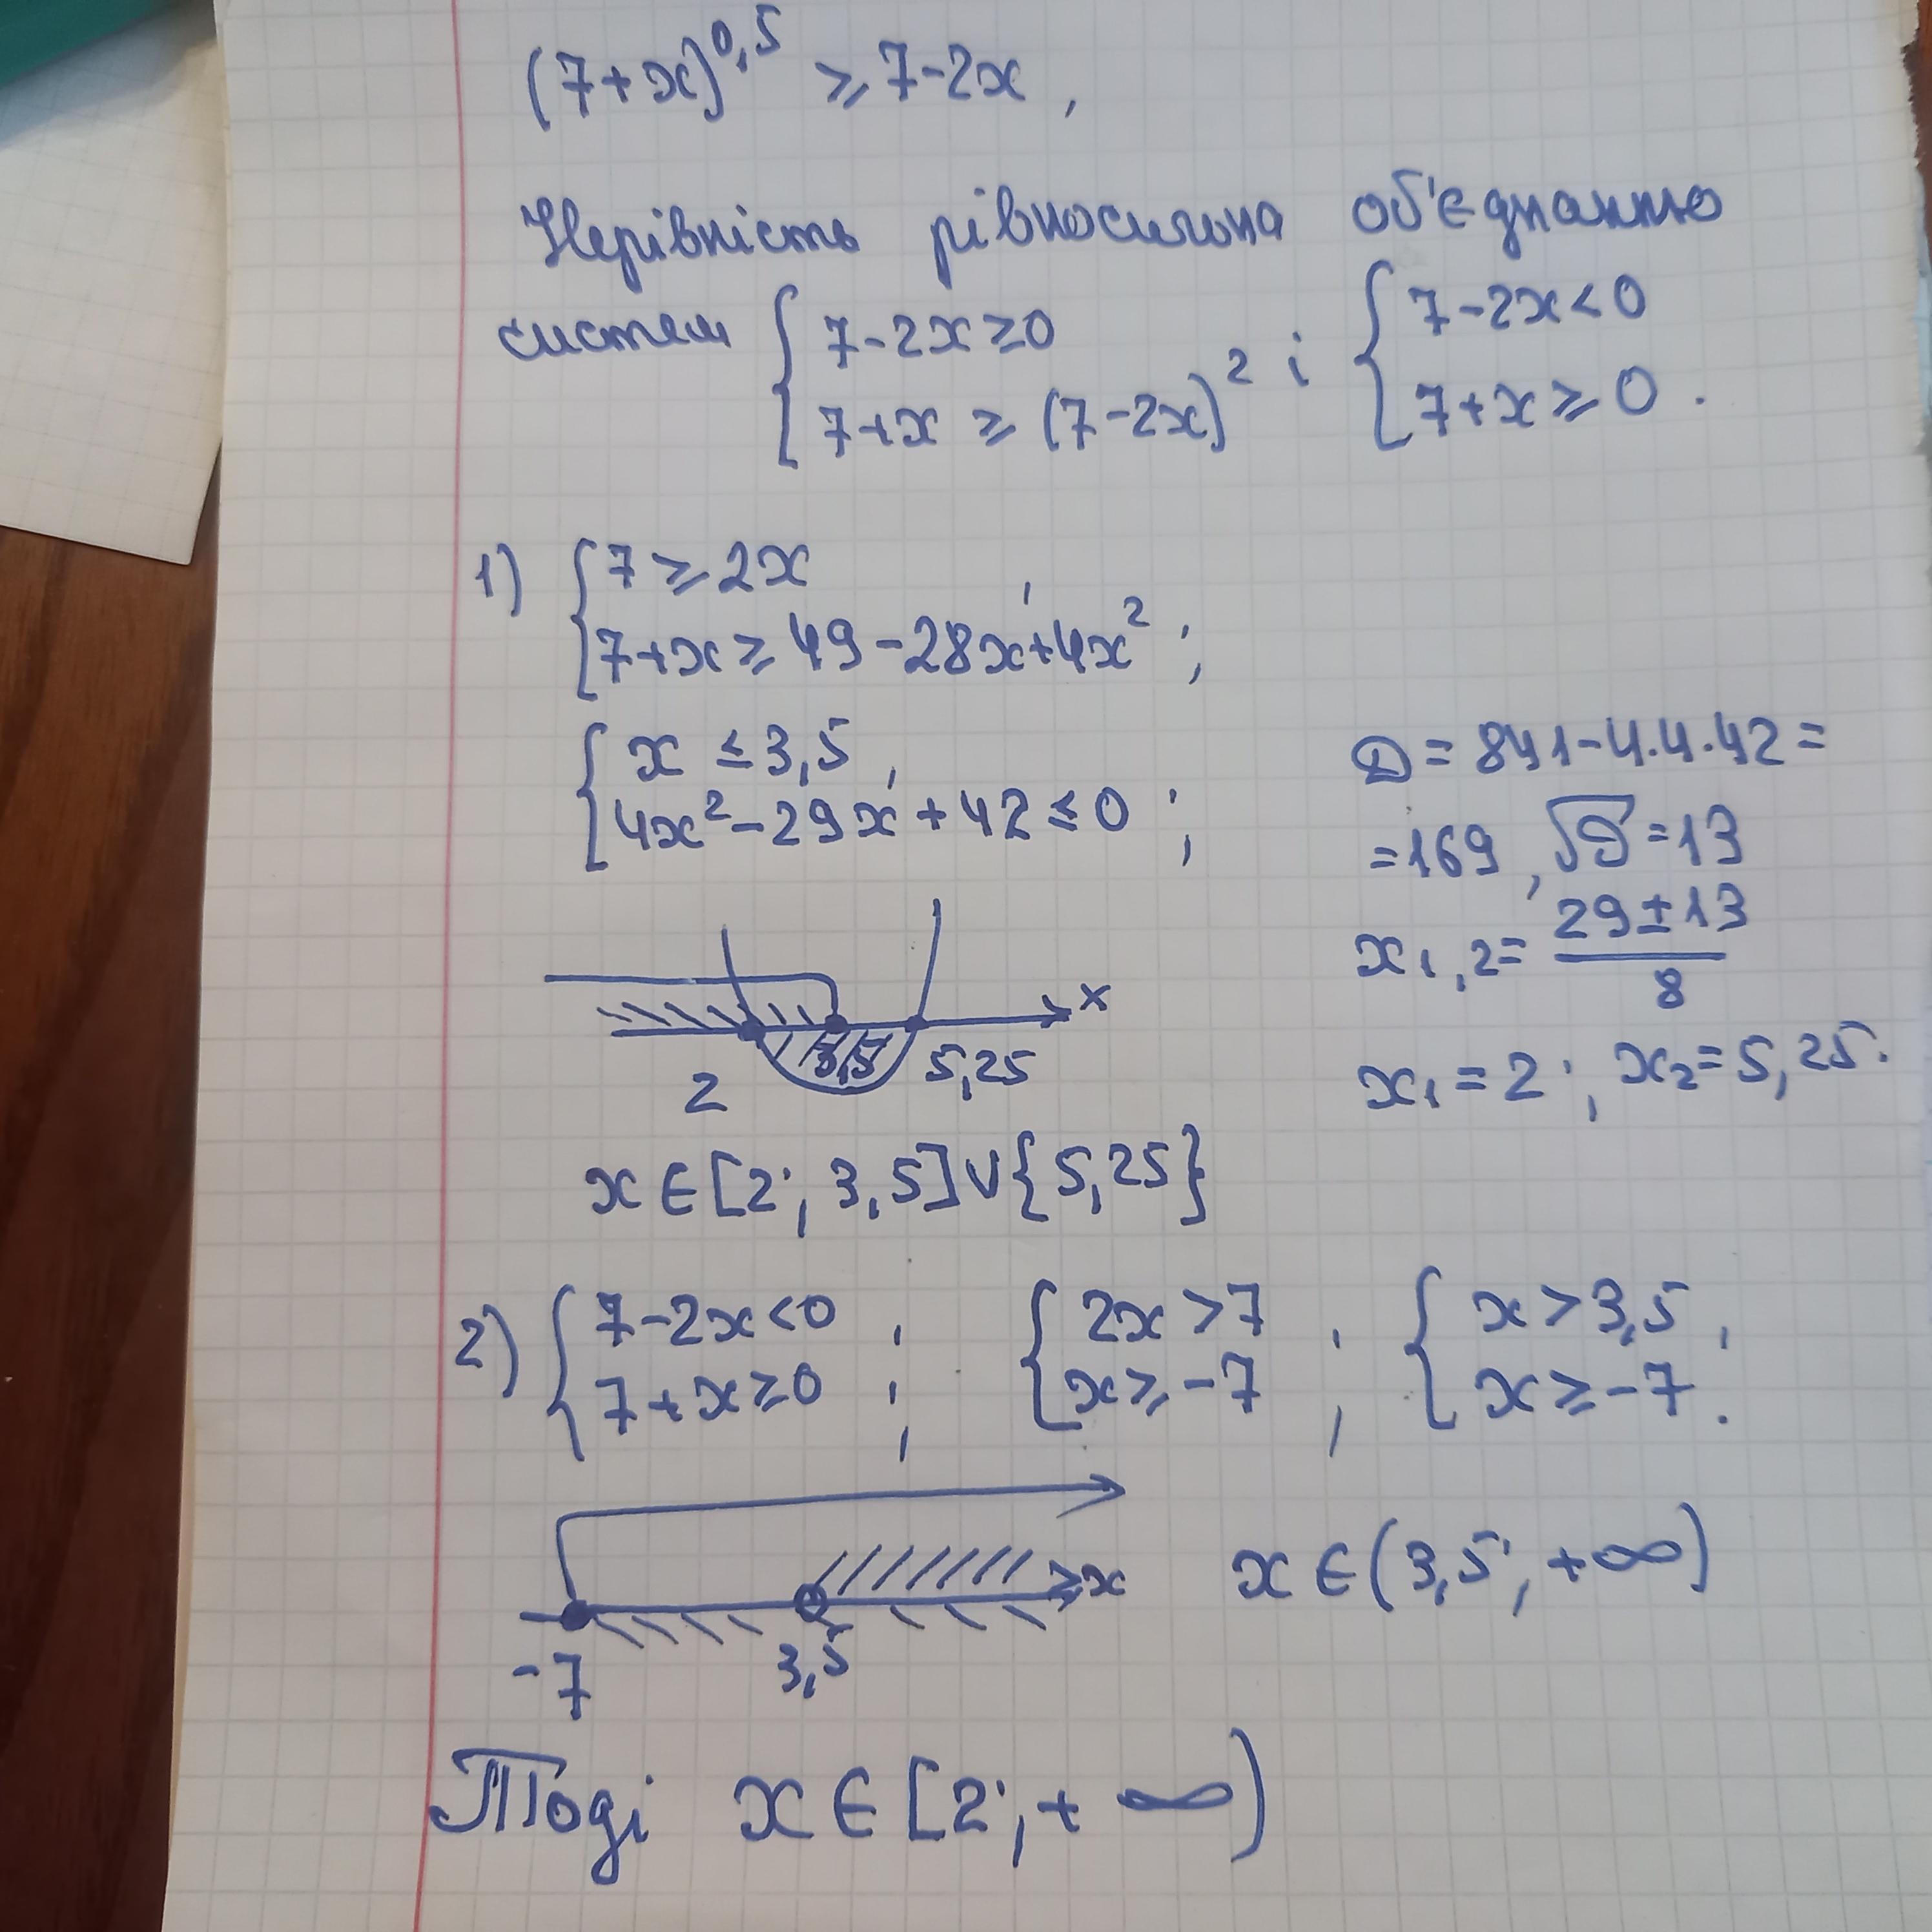 (7+x)^0,5 ≥ 7-2x,
Нерівність рівносильна об'єднанню
систем { 7-2x ≥ 0 і { 7-2x < 0
7+x ≥ (7-2x)² 7+x ≥ 0.
1) { 7 ≥ 2x ,
7+x ≥ 49-28x+4x² ;
{ x ≤ 3,5 ,
4x²-29x+42 ≤ 0 ;
D = 841-4·4·42 =
= 169, √D = 13
x₁,₂ = (29±13)/8
x₁ = 2 ; x₂ = 5,25.
x
2 3,5 5,25
x ∈ [2; 3,5] ∪ {5,25}
2) { 7-2x < 0 ; { 2x > 7 ; { x > 3,5 ;
7+x ≥ 0 ; x ≥ -7 ; x ≥ -7.
x
-7 3,5
x ∈ (3,5; +∞)
Тоді x ∈ [2; +∞)